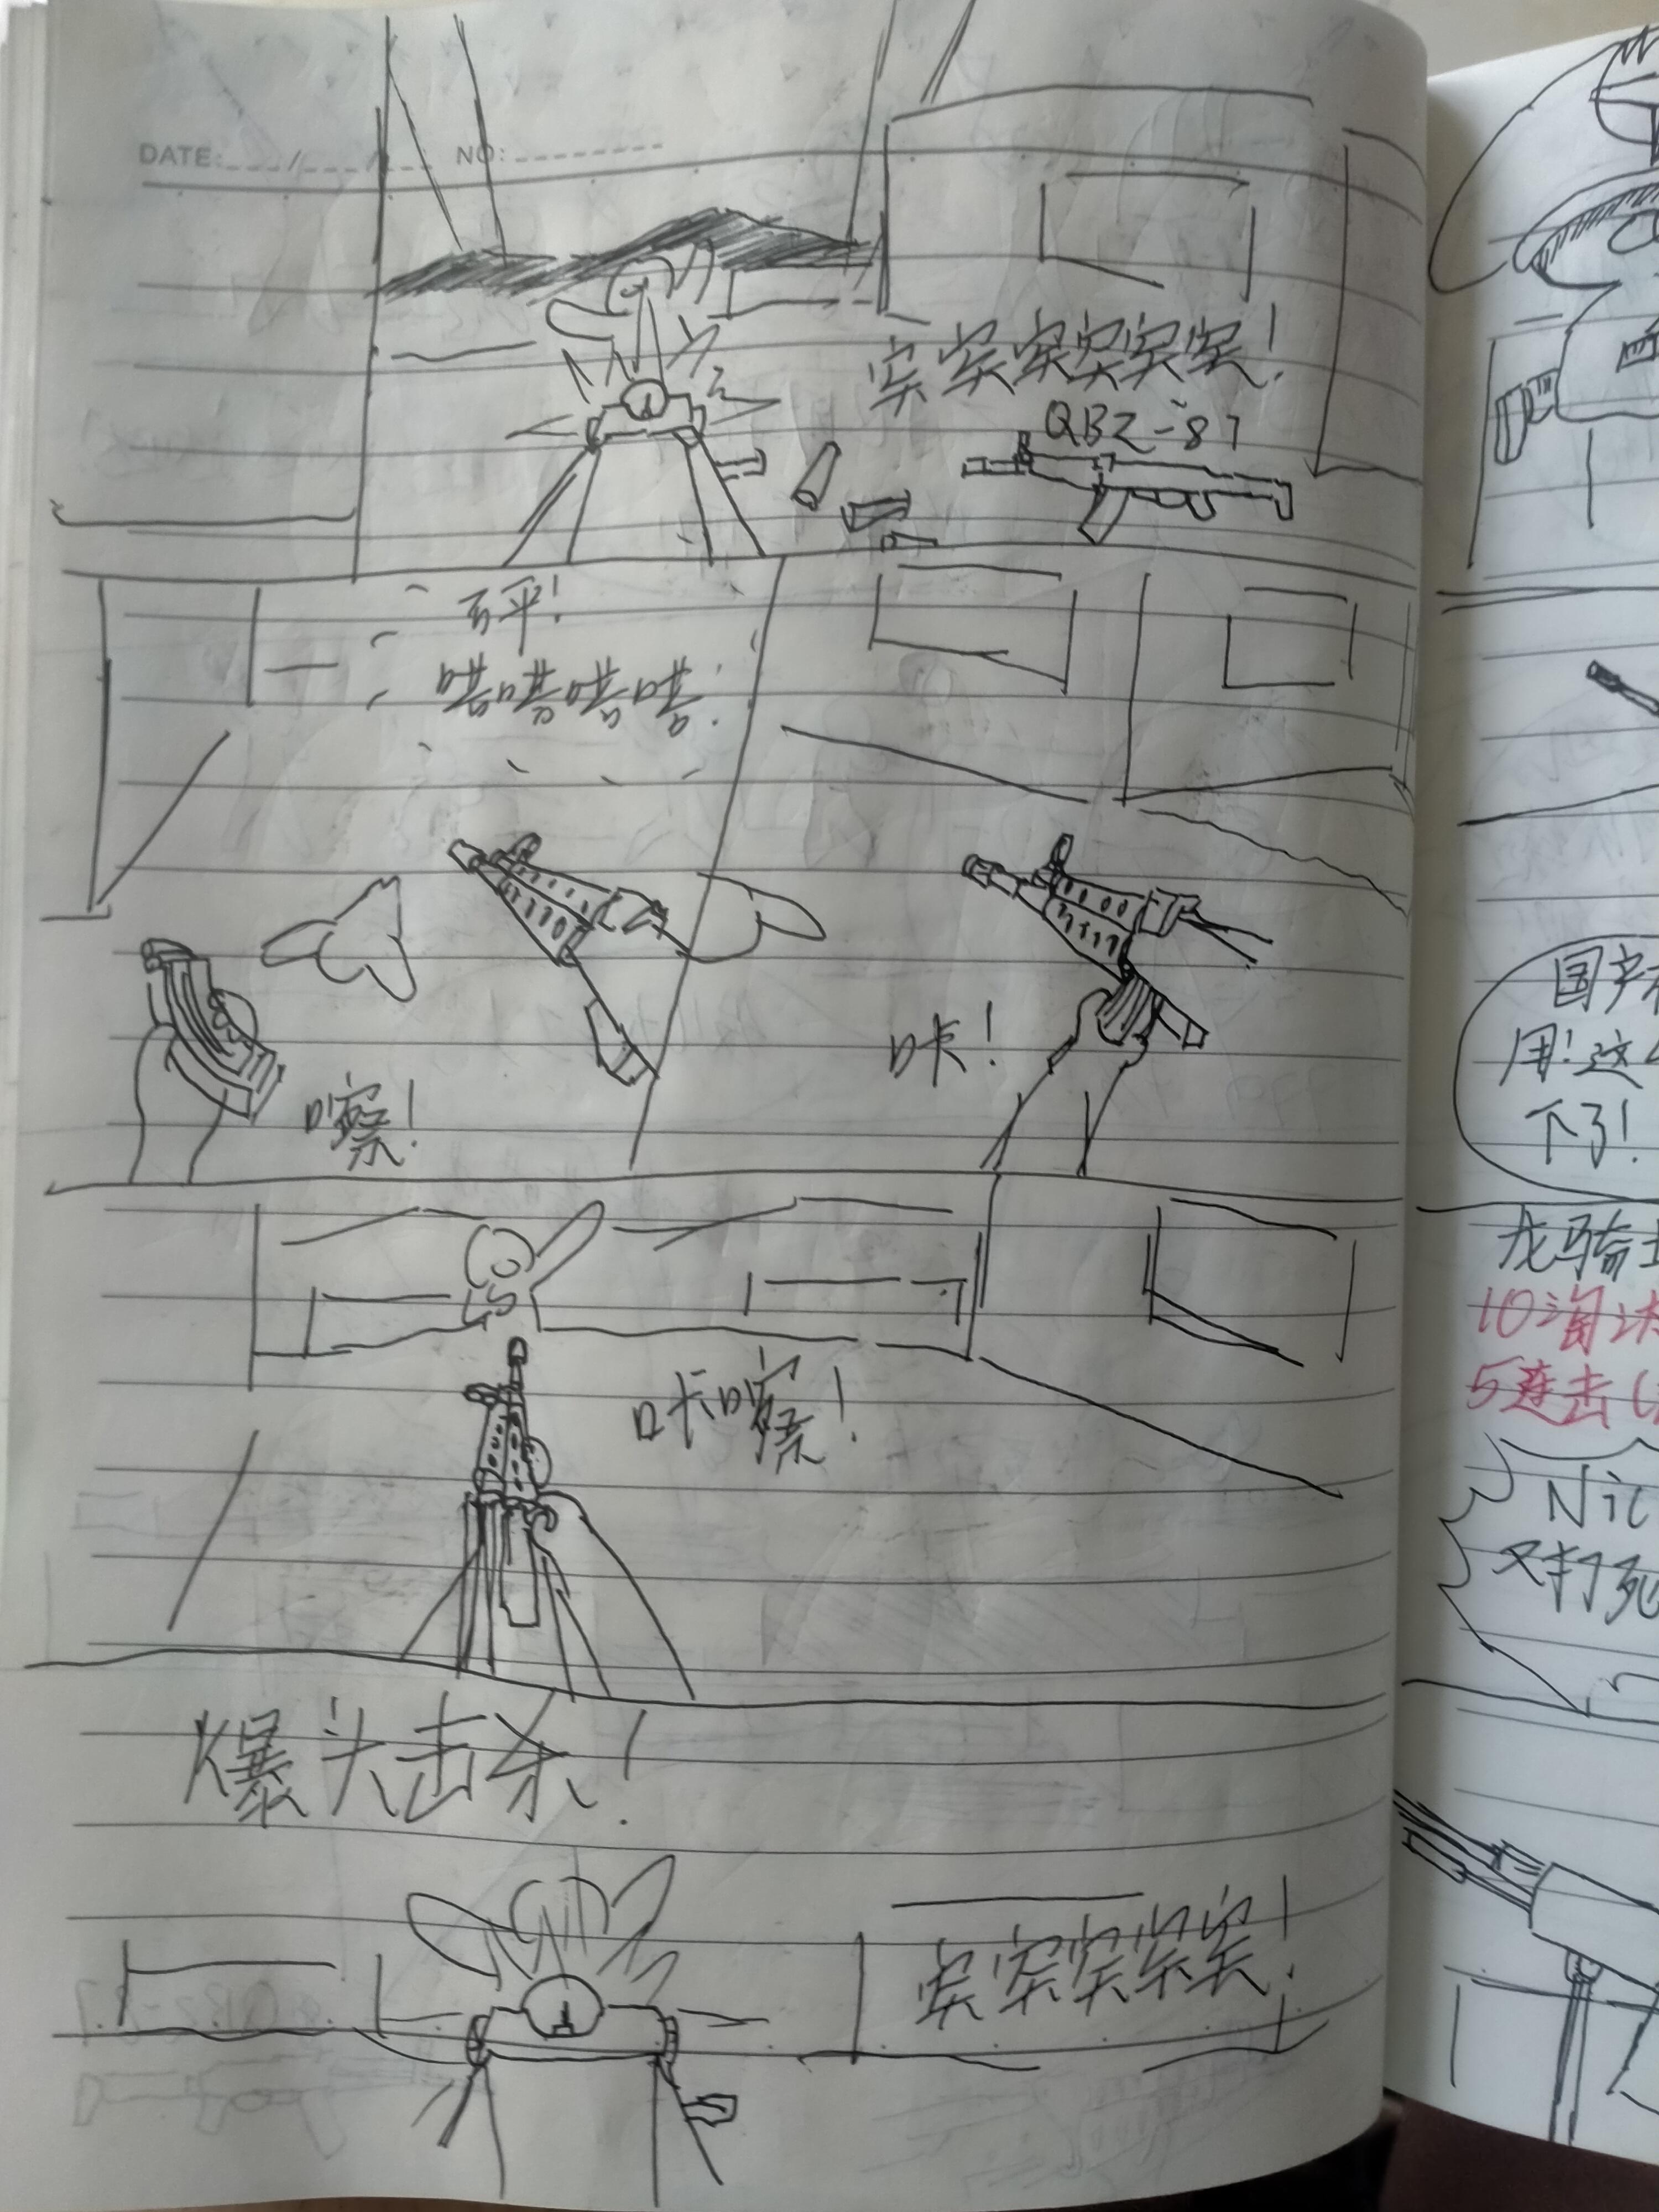 DATE: / / NO:
突突突突突突!
QBZ-87
砰!
嗒嗒嗒嗒!
嚓!
咔!
咔嚓!
爆头击杀!
突突突突突!
国产
用!这
下了!
龙骑士
10淘汰
5连击(
Nic
又打死